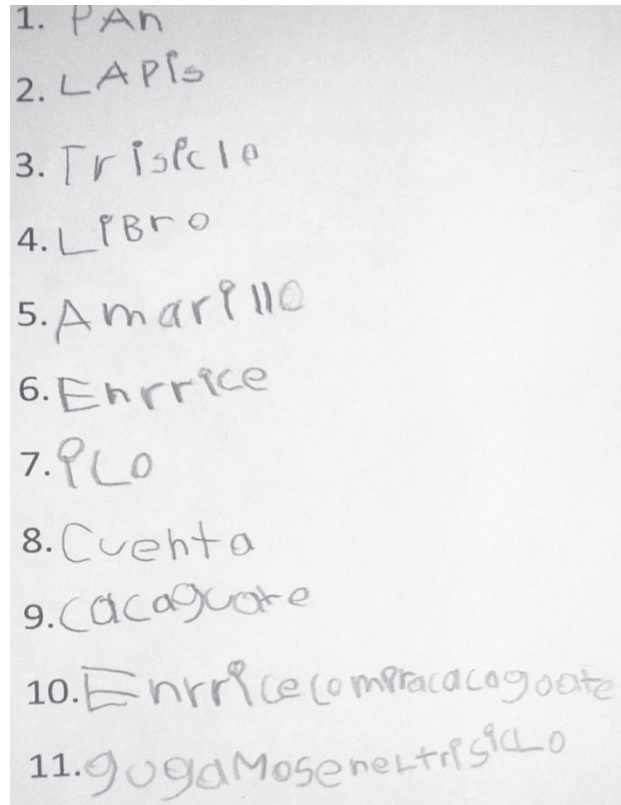 1. PAn
2. LAPis
3. Trisicle
4. LiBro
5. Amarillo
6. Enrrice
7. iLo
8. Cuenta
9. cacaguate
10. Enrricecompracacagoate
11. gugaMoseneLtrisicLo